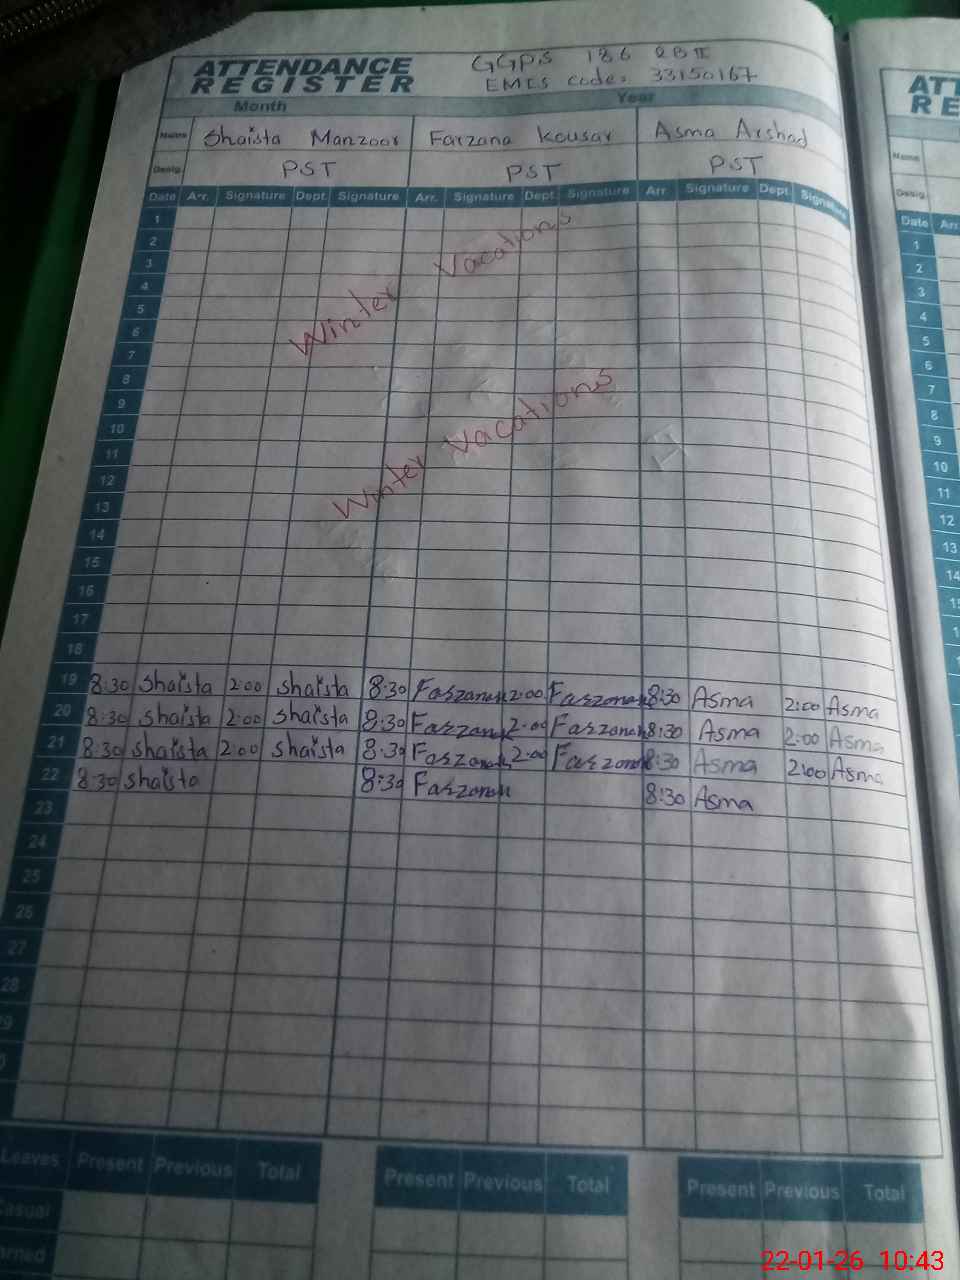 ATTENDANCE REGISTER
GGPS 186 RB II
EMIS Code: 33150167
Month Year
Name Shaista Manzoor Farzana Kousar Asma Arshad
Desig. PST PST PST
Date Arr. Signature Dept. Signature Arr. Signature Dept. Signature Arr. Signature Dept. Signature
1
2
3
4
5
6
7
8
9
10
11
12
13
14
15
16
17
18
Winter Vacations
Winter Vacations
19 8:30 Shaista 2:00 Shaista 8:30 Farzanah 2:00 Farzanah 8:30 Asma 2:00 Asma
20 8:30 Shaista 2:00 Shaista 8:30 Farzanah 2:00 Farzanah 8:30 Asma 2:00 Asma
21 8:30 Shaista 2:00 Shaista 8:30 Farzanah 2:00 Farzanah 8:30 Asma 2:00 Asma
22 8:30 Shaista 8:30 Farzanah 8:30 Asma
23
24
25
26
27
28
Leaves Present Previous Total Present Previous Total Present Previous Total
Name
Desig.
Date Arr.
1
2
3
4
5
6
7
8
9
10
11
12
13
14
22-01-26 10:43